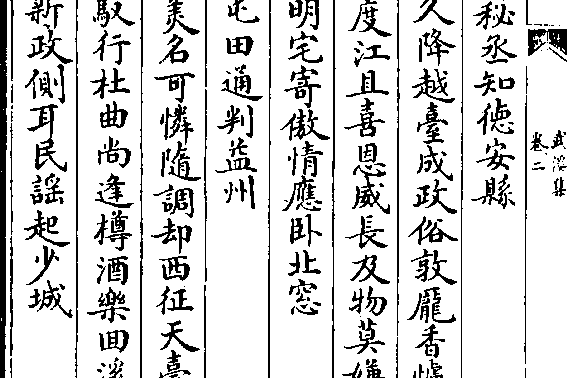 武溪集
卷二
秘丞知德安縣
久降越臺成政俗敦龎香爐
度江且喜恩威長及物莫嫌
明宅寄傲情應卧北窓
屯田通判益州
美名可憐隨調却西征天臺
馭行杜曲尚逢樽酒樂回溪
新政側耳民謡起少城